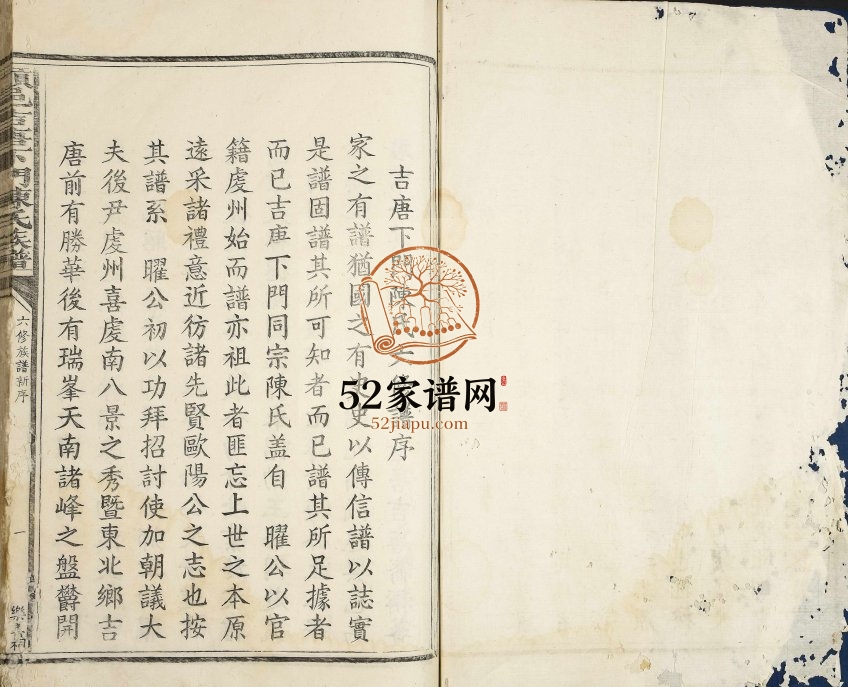 吉唐下門陳氏六修譜序
家之有譜猶國之有史史以傳信譜以誌實
是譜固譜其所可知者而已譜其所足據者
而已吉唐下門同宗陳氏盖自 曜公以官
籍虔州始而譜亦祖此者匪忘上世之本原
遠采諸禮意近彷諸先賢歐陽公之志也按
其譜系 曜公初以功拜招討使加朝議大
夫後尹虔州喜虔南八景之秀暨東北鄉吉
唐前有勝華後有瑞峯天南諸峰之盤欝開
下門陳氏族譜
六修族譜新序
一
52家谱网
52jiapu.com